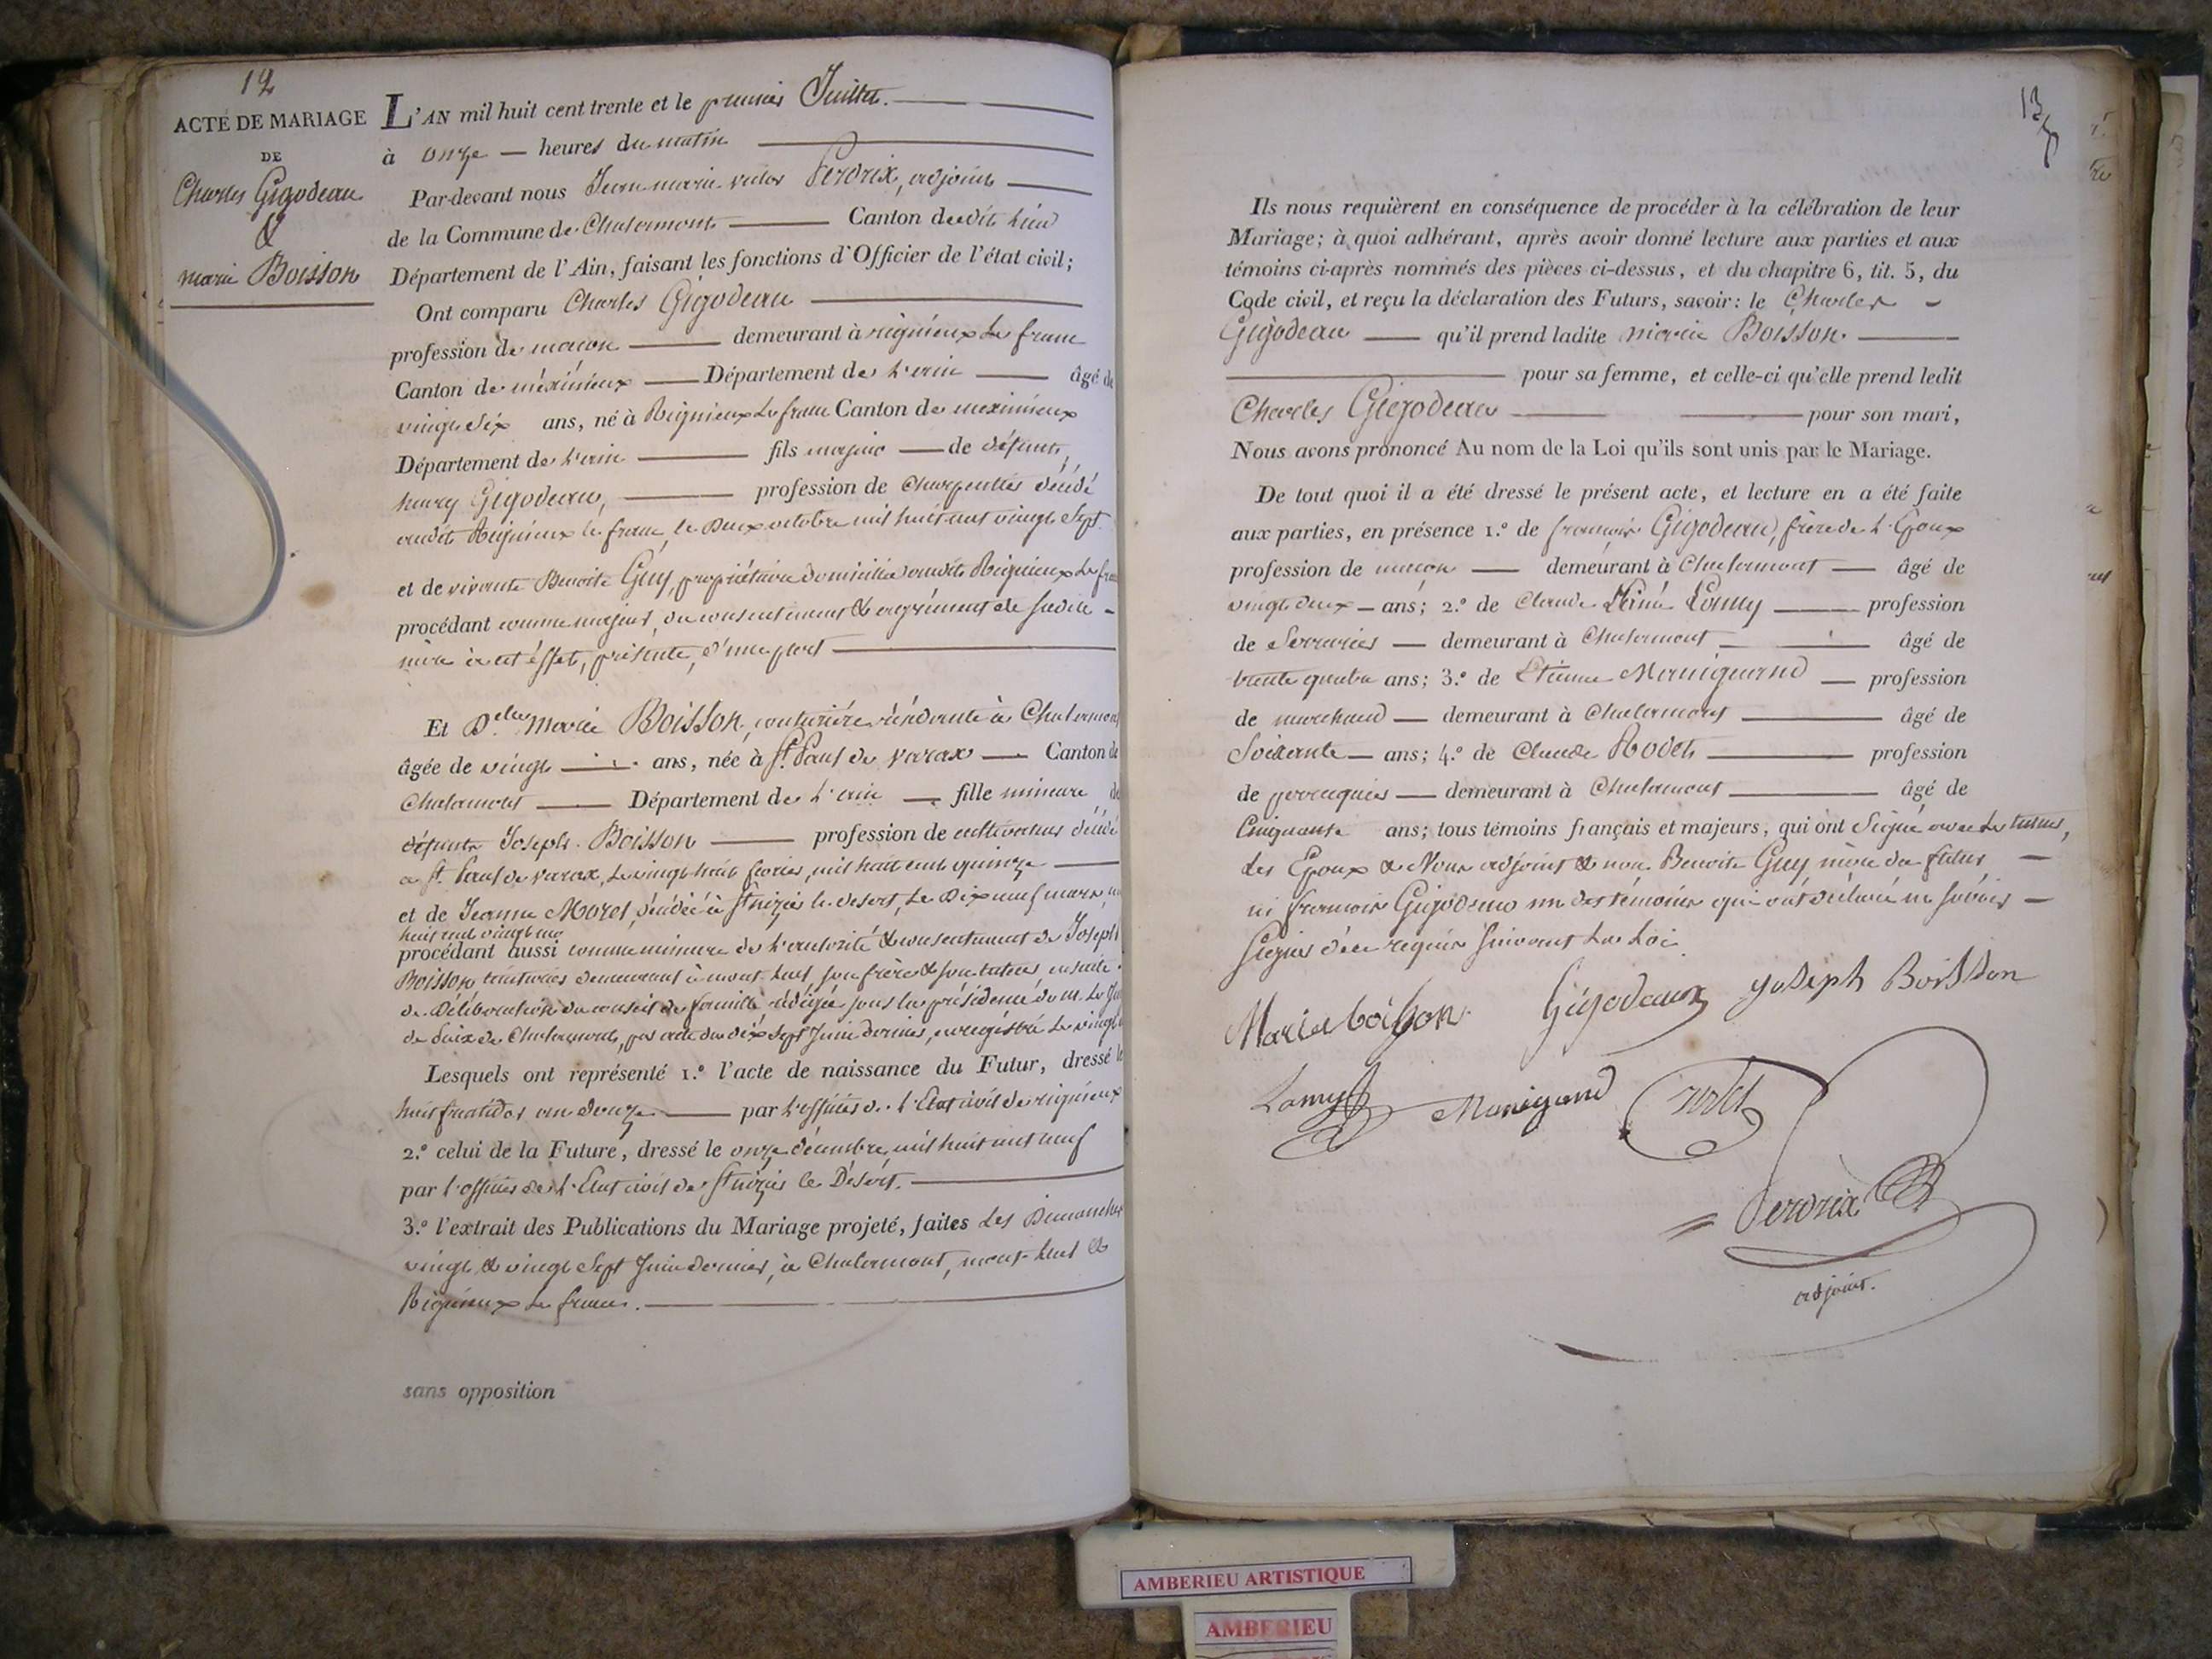 12
ACTE DE MARIAGE
DE
Charles Gigodeau
&
marie Boisson
L'AN mil huit cent trente et le premier Juillet.
à onze — heures du matin
Par-devant nous Jean marie victor Perdrix, adjoint
de la Commune de Chalamont Canton dudit lieu
Département de l'Ain, faisant les fonctions d'Officier de l'état civil;
Ont comparu Charles Gigodeau
profession de macon demeurant à rignieux le franc
Canton de méximieux Département de l'ain âgé de
vingt six ans, né à Rignieux le franc Canton de meximieux
Département de l'ain fils majeur de défunt
henry Gigodeau, profession de Charpentier décédé
audit Rignieux le franc, le Deux octobre mil huit cent vingt sept
et de vivante Benoite Guy, propriétaire domiciliée audit Rignieux le franc
procédant comme majeur, du consentement & agrément de sadite
mère à cet éffet, présente, d'une part
Et Delle Marie Boisson, couturière résidante à Chalamont
âgée de vingt ans, née à St. Paul de varax Canton de
Chalamont Département de l'ain fille mineure de
défunt Joseph Boisson profession de cultivateur décédé
a St. Paul de varax, le vingt huit fevrier, mil huit cent quinze
et de Jeanne Morel, décédée à St nizier le desert, le Dix neuf mars, mil
huit cent vingt
procédant aussi comme mineure de l'autorité & consentement de Joseph
Boisson demeurant à mont-luel, son frère & son tuteur, ensuite
de Délibération du conseil de famille rédigée sous la présidence de m. le Juge
de Paix de Chalamont, par acte du dix sept Juin dernier, enregistré le vingt
Lesquels ont représenté 1.° l'acte de naissance du Futur, dressé le
huit fructidor an douze par l'officier de l'Etat civil de rignieux
2.° celui de la Future, dressé le onze décembre, mil huit cent neuf
par l'officier de l'Etat civil de St nizier le Désert.
3.° l'extrait des Publications du Mariage projeté, faites les Dimanches
vingt & vingt Sept Juin dernier, à Chalamont, mont-luel &
Rignieux le franc.
sans opposition
13
Ils nous requièrent en conséquence de procéder à la célébration de leur
Mariage; à quoi adhérant, après avoir donné lecture aux parties et aux
témoins ci-après nommés des pièces ci-dessus, et du chapitre 6, tit. 5, du
Code civil, et reçu la déclaration des Futurs, savoir: le Charles
Gigodeau qu'il prend ladite marie Boisson.
pour sa femme, et celle-ci qu'elle prend ledit
Charles Gigodeau pour son mari,
Nous avons prononcé Au nom de la Loi qu'ils sont unis par le Mariage.
De tout quoi il a été dressé le présent acte, et lecture en a été faite
aux parties, en présence 1.° de françois Gigodeau, frère de l'Epoux
profession de macon demeurant à Chalamont âgé de
vingt deux ans; 2.° de Claude Aimé Lamy profession
de Serrurier demeurant à Chalamont âgé de
trente quatre ans; 3.° de Etienne Manigand profession
de marchand demeurant à Chalamont âgé de
Soixante ans; 4.° de Claude Rodet profession
de perruquier demeurant à Chalamont âgé de
Cinquante ans; tous témoins français et majeurs, qui ont Signé avec le tuteur,
les Epoux & Nous adjoint & non Benoite Guy mère du futur
ni françois Gigodeau un des témoins qui ont déclaré ne savoir
signer de ce requis suivant la Loi.
Marie boisson Gigodeaux joseph Boisson
Lamy Manigand rodet
Perdrix
adjoint.
AMBERIEU ARTISTIQUE
AMBERIEU